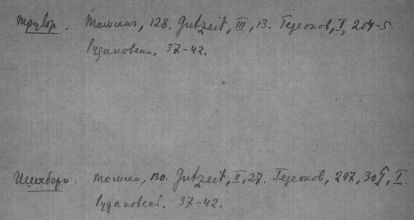 Трувор. Томсен, 128. Gutzeit, III, 13. Гедеонов, I, 204-5.
Рудановск. 37-42.
Томсен, 130. Gutzeit, II, 27. Гедеонов, 297, 309, I.
Рудановск. 37-42.